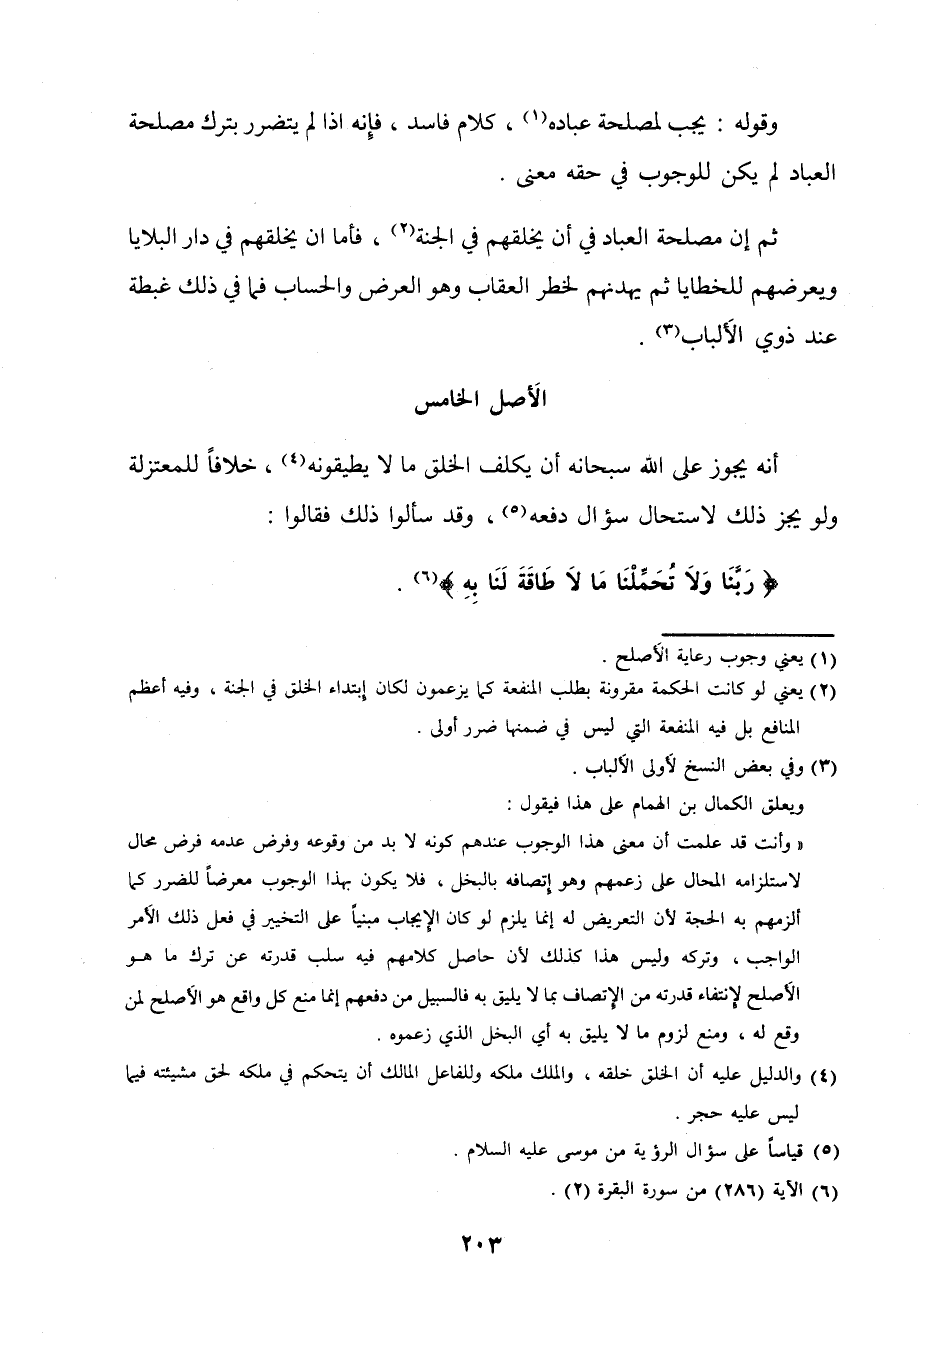 وقوله : يجب لمصلحة عباده(١) ، كلام فاسد ، فإنه اذا لم يتضرر بترك مصلحة
العباد لم يكن للوجوب في حقه معنى .
ثم إن مصلحة العباد في أن يخلقهم في الجنة(٢) ، فأما ان يخلقهم في دار البلايا
ويعرضهم للخطايا ثم يهدنهم لخطر العقاب وهو العرض والحساب فما في ذلك غبطة
عند ذوي الألباب(٣) .
الأصل الخامس
أنه يجوز على الله سبحانه أن يكلف الخلق ما لا يطيقونه(٤) ، خلافاً للمعتزلة
ولو يجز ذلك لاستحال سؤال دفعه(٥) ، وقد سألوا ذلك فقالوا :
﴿ رَبَّنَا وَلَا تُحَمِّلْنَا مَا لَا طَاقَةَ لَنَا بِهِ ﴾(٦) .
(١) يعني وجوب رعاية الأصلح .
(٢) يعني لو كانت الحكمة مقرونة بطلب المنفعة كما يزعمون لكان إبتداء الخلق في الجنة ، وفيه أعظم
المنافع بل فيه المنفعة التي ليس في ضمنها ضرر أولى .
(٣) وفي بعض النسخ لأولى الألباب .
ويعلق الكمال بن الهمام على هذا فيقول :
« وأنت قد علمت أن معنى هذا الوجوب عندهم كونه لا بد من وقوعه وفرض عدمه فرض محال
لاستلزامه المحال على زعمهم وهو إتصافه بالبخل ، فلا يكون بهذا الوجوب معرضاً للضرر كما
ألزمهم به الحجة لأن التعريض له إنما يلزم لو كان الإيجاب مبنياً على التخيير في فعل ذلك الأمر
الواجب ، وتركه وليس هذا كذلك لأن حاصل كلامهم فيه سلب قدرته عن ترك ما هو
الأصلح لإنتفاء قدرته من الإتصاف بما لا يليق به فالسبيل من دفعهم إنما منع كل واقع هو الأصلح لمن
وقع له ، ومنع لزوم ما لا يليق به أي البخل الذي زعموه .
(٤) والدليل عليه أن الخلق خلقه ، والملك ملكه وللفاعل المالك أن يتحكم في ملكه لحق مشيئته فيما
ليس عليه حجر .
(٥) قياساً على سؤال الرؤية من موسى عليه السلام .
(٦) الآية (٢٨٦) من سورة البقرة (٢) .
٢٠٣